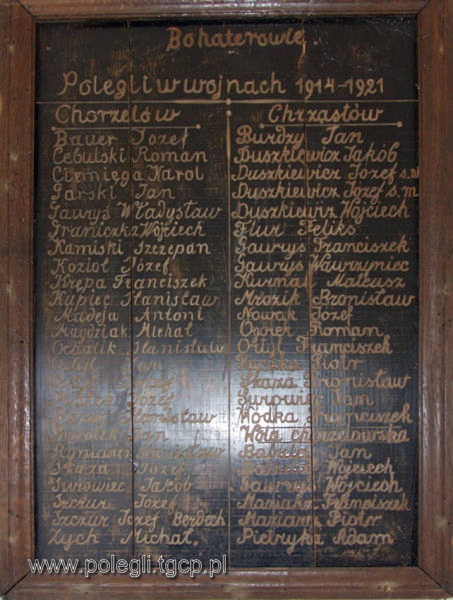 Bohaterowie
Polegli w wojnach 1914-1921
Chorzelów
Bauer Józef
Cebulski Roman
Ćwinięga Karol
Garski Jan
Gawryś Władysław
Graniczka Wojciech
Kamiski Szczepan
Kozioł Józef
Krępa Franciszek
Kupiec Stanisław
Madeja Antoni
Maydziak Michał
Stanisław
Jan
Józef
Józef
Stanisław
Jan
Skaza Józef
Surowiec Jakób
Szczur Józef
Szczur Józef Berdach
Zych Michał
Chrząstów
Burdzy Jan
Duszkiewicz Jakób
Duszkiewicz Józef s.w
Duszkiewicz Józef s.m
Duszkiewicz Wojciech
Flur Feliks
Gawryś Franciszek
Gawryś Wawrzyniec
Kurmal Mateusz
Mrozik Bronisław
Nowak Józef
Roman
Ortyl Franciszek
Piotr
Skaza Bronisław
Surowiec Jan
Wódka Franciszek
Wola chorzelowska
Babula Jan
Wojciech
Gawryś Wojciech
Marianz Franciszek
Marianz Piotr
Pietryka Adam
www.polegli.tgcp.pl